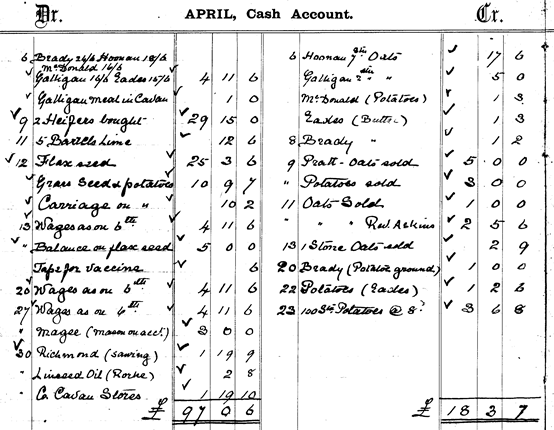 Dr. APRIL, Cash Account. Cr.
6 Brady 24/6 Hoonan 18/6
McDonald 16/6
Galligan 16/6 Eades 15/6 4 11 6
Galligan meal in Cavan 1 0
9 2 Heifers bought 29 15 0
11 5 Barrels Lime 12 6
12 Flax seed 25 3 6
Grass Seed & potatoes 10 9 7
Carriage on " 10 2
13 Wages as on 6th 4 11 6
" Balance on flax seed 5 0 0
Tape for vaccine 6
20 Wages as on 6th 4 11 6
27 Wages as on 6th 4 11 6
" Magee (mason on acct.) 3 0 0
30 Richmond (sawing) 1 19 9
" Linseed Oil (Rorke) 2 8
" Co Cavan Stores 1 19 10
£ 97 0 6
6 Hoonan 7 stn Oats 17 6
Galligan 2 stn " 5 0
McDonald (Potatoes) 1 3
Eades (Butter) 1 3
8 Brady " 1 2
9 Pratt - Oats sold 5 0 0
" Potatoes sold 3 0 0
11 Oats Sold 1 0 0
" " " Revd Askins 2 5 6
13 1 Store Oats sold 2 9
20 Brady (Potato ground) 1 0 0
22 Potatoes (Eades) 1 2 6
23 100 Stn Potatoes @ 8d 3 6 8
£ 18 3 7